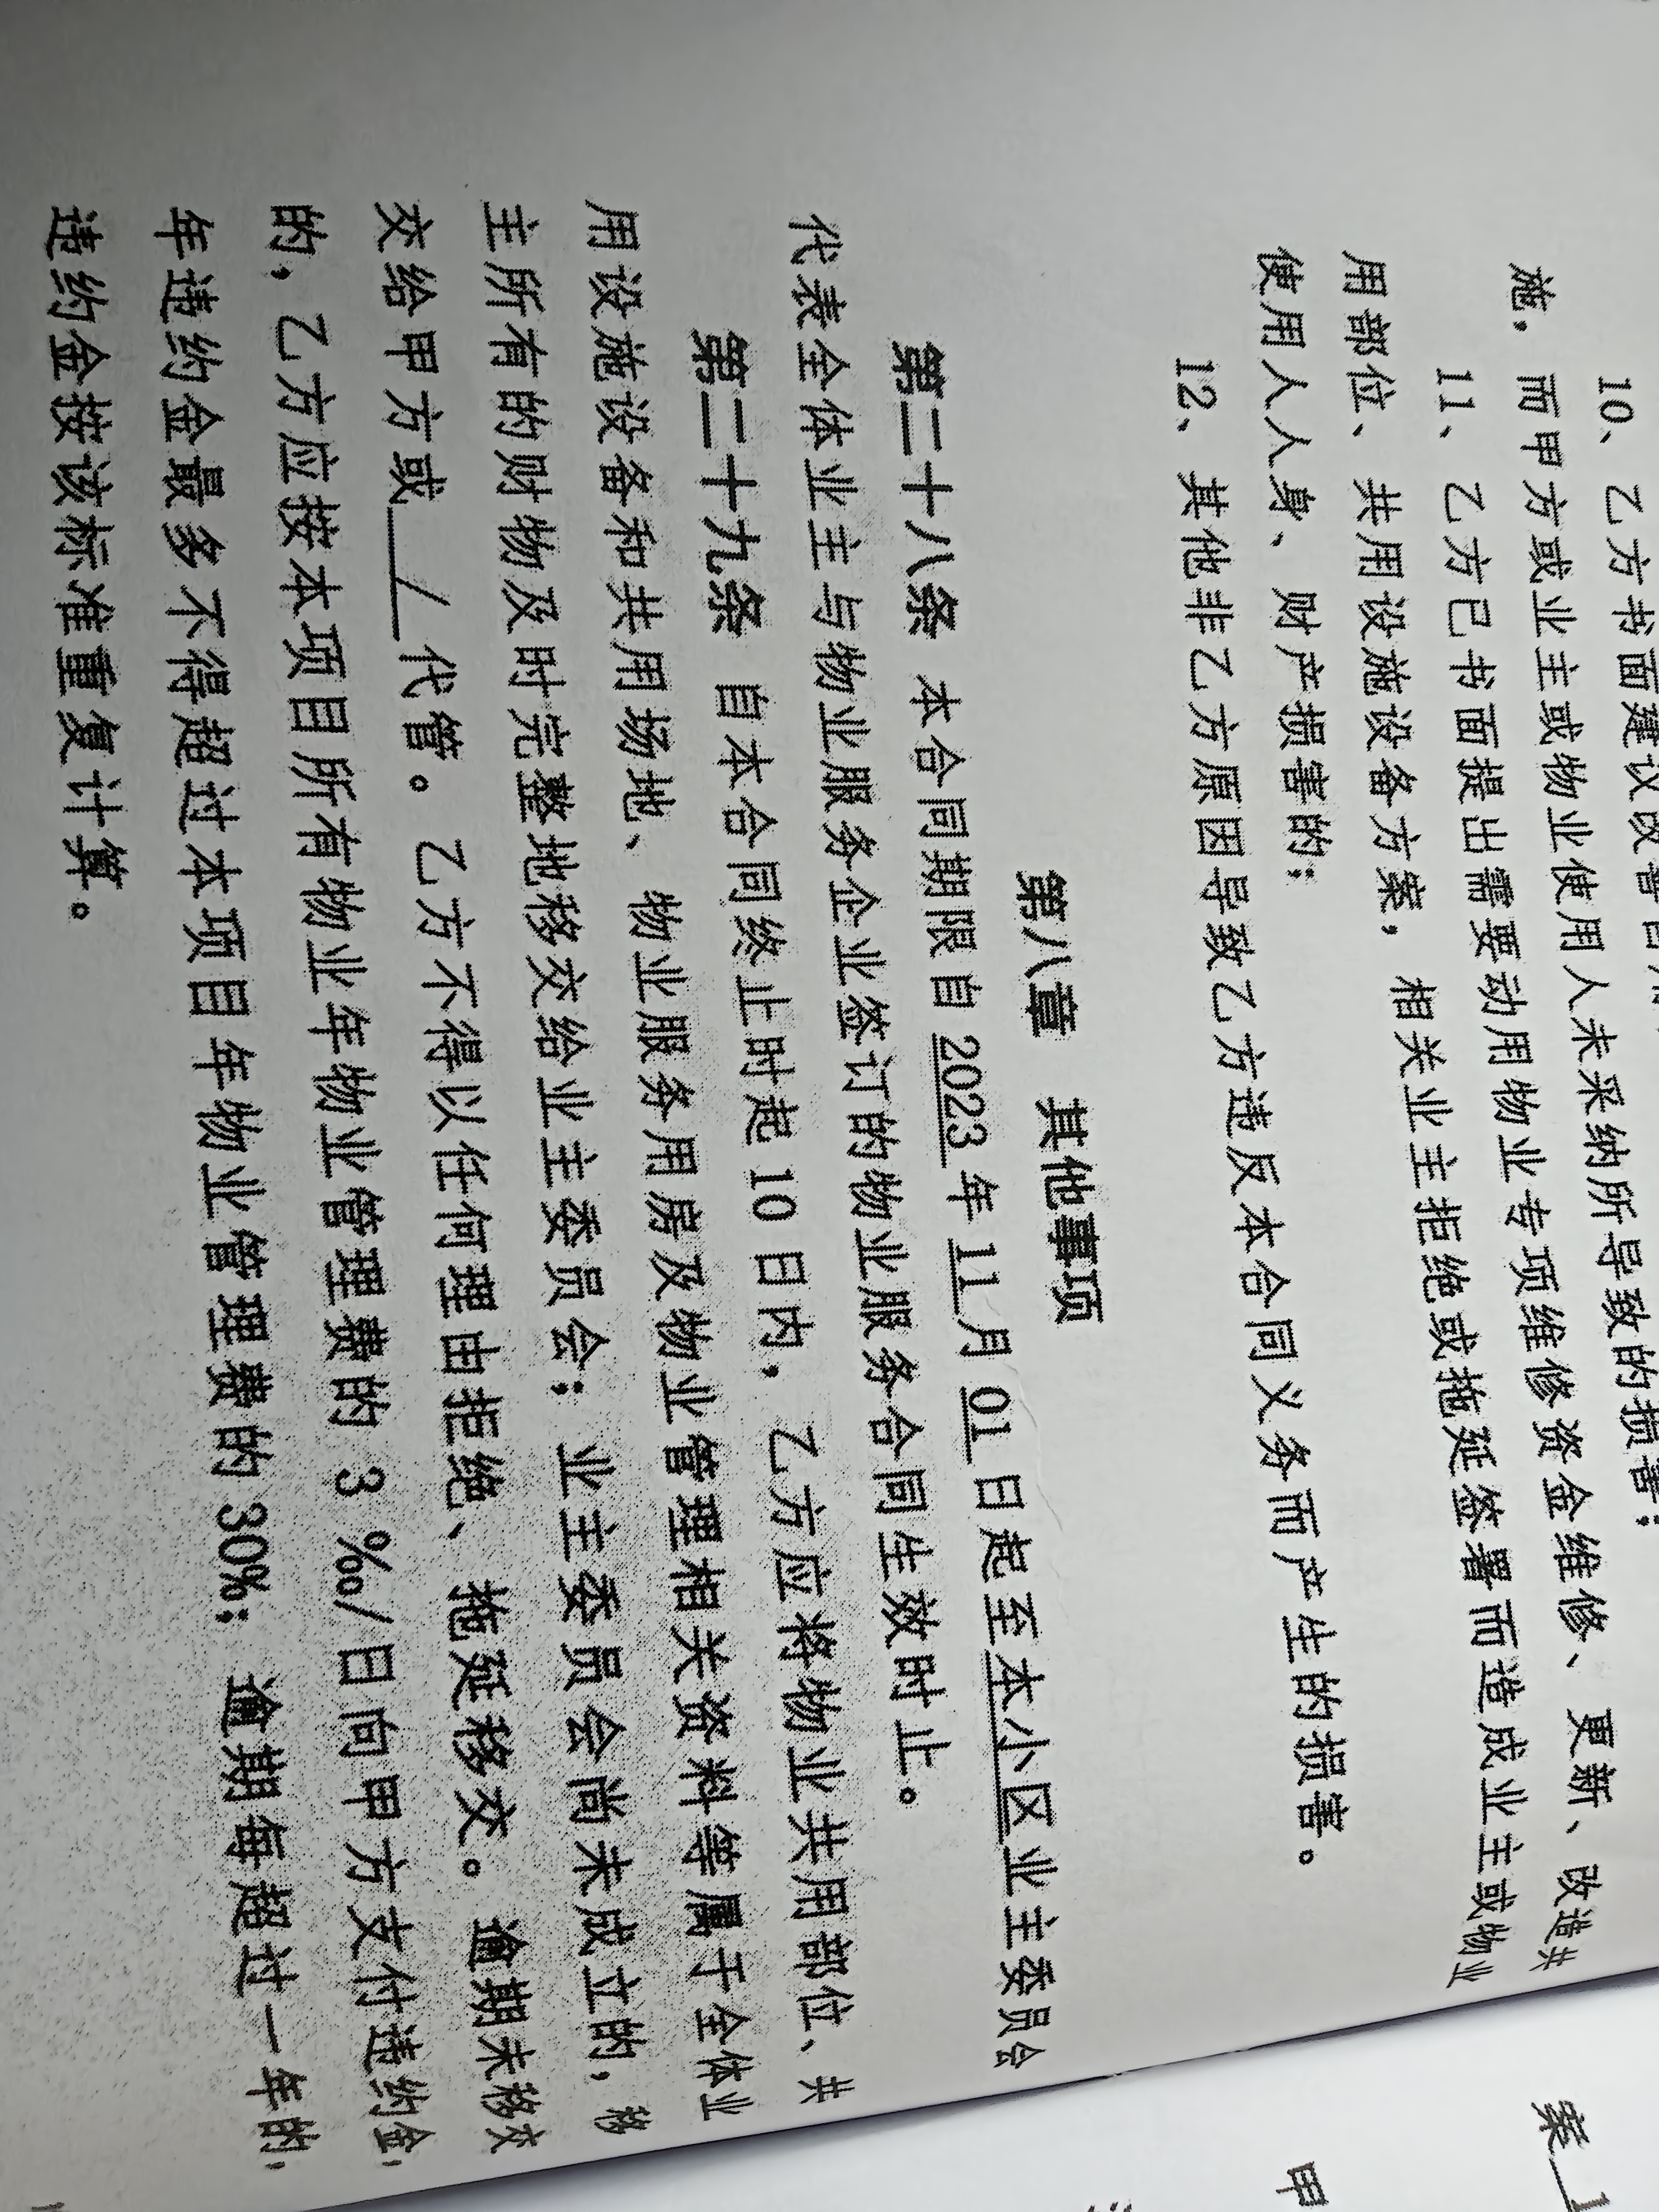 10、乙方书面建议改善
施，而甲方或业主或物业使用人未采纳所导致的损害；
11、乙方已书面提出需要动用物业专项维修资金维修、更新、改造共
用部位、共用设施设备方案，相关业主拒绝或拖延签署而造成业主或物业
使用人人身、财产损害的；
12、其他非乙方原因导致乙方违反本合同义务而产生的损害。
第八章 其他事项
第二十八条 本合同期限自 2023 年 11 月 01 日起至本小区业主委员会
代表全体业主与物业服务企业签订的物业服务合同生效时止。
第二十九条 自本合同终止时起 10 日内，乙方应将物业共用部位、共
用设施设备和共用场地、物业服务用房及物业管理相关资料等属于全体业
主所有的财物及时完整地移交给业主委员会；业主委员会尚未成立的，移
交给甲方或 / 代管。乙方不得以任何理由拒绝、拖延移交。逾期未移交
的，乙方应按本项目所有物业年物业管理费的 3 ‰/日向甲方支付违约金，
年违约金最多不得超过本项目年物业管理费的 30%；逾期每超过一年的，
违约金按该标准重复计算。
案 1
甲